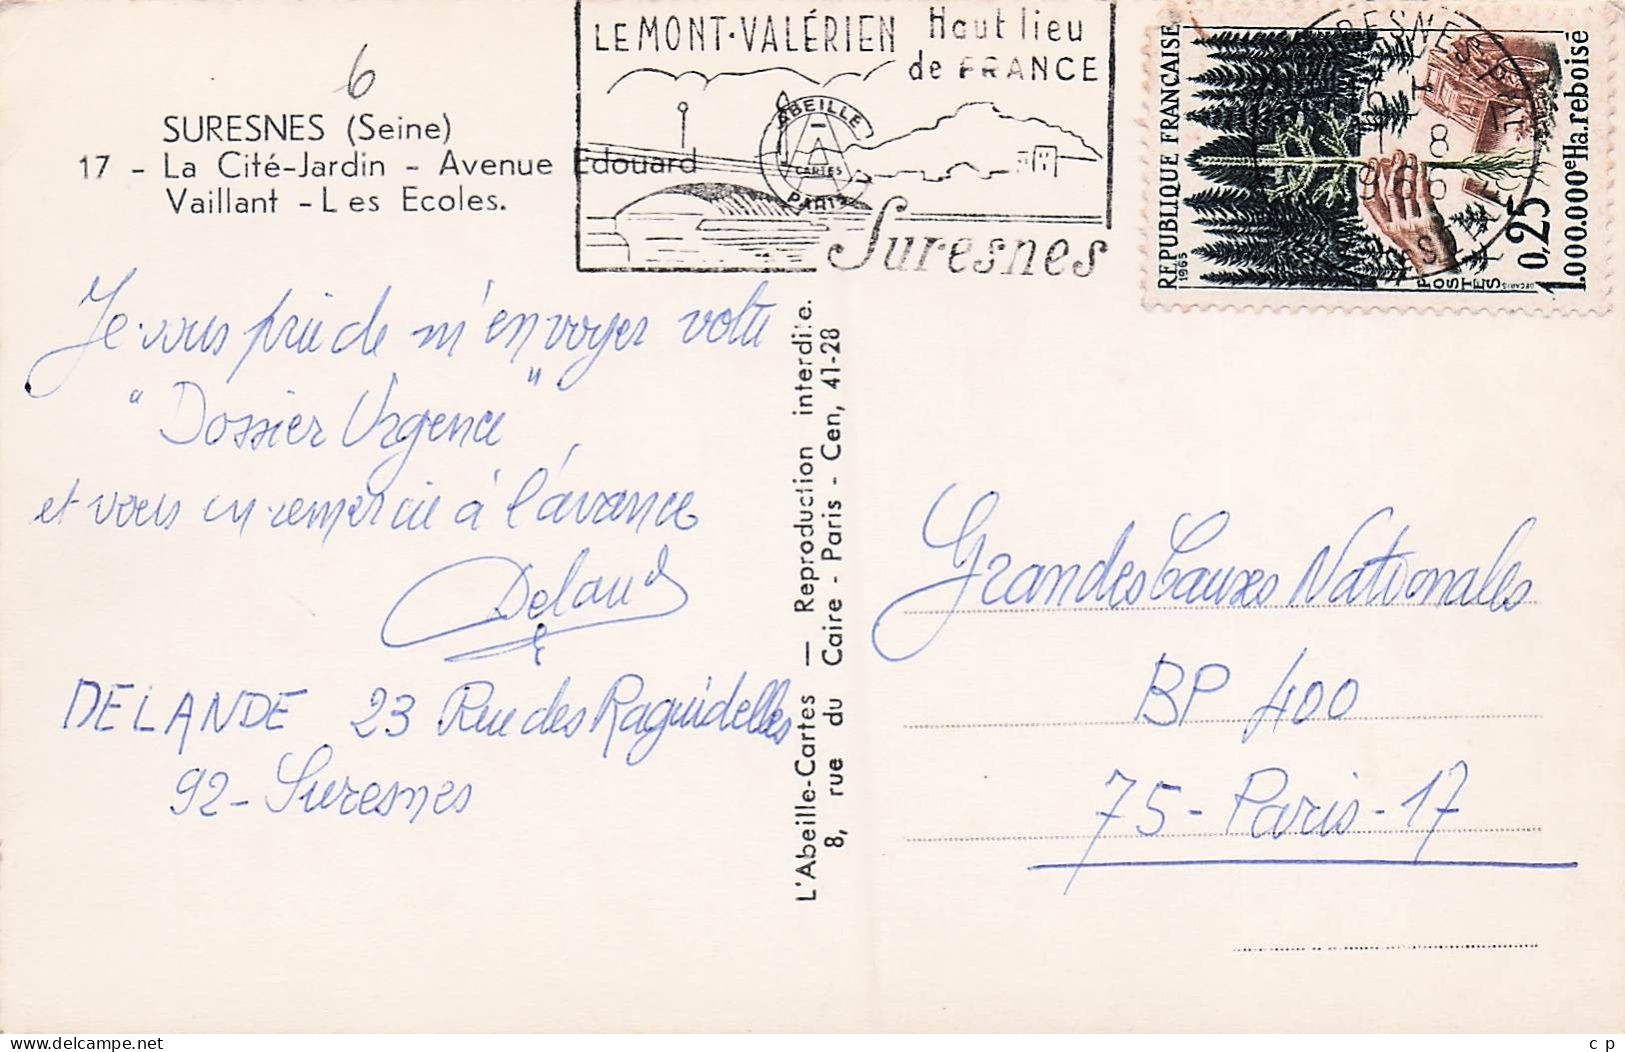 6
SURESNES (Seine)
17 - La Cité-Jardin - Avenue Edouard
Vaillant - Les Ecoles.
LE MONT-VALÉRIEN Haut lieu
de FRANCE
Suresnes
ABEILLE
CARTES
PARIS
RÉPUBLIQUE FRANÇAISE
1965
1.000.000e Ha. reboisé
0,25
POSTES
DECARIS
8
1965
Je vous prie de m'envoyer votre
"Dossier Urgence"
et vous en remercie à l'avance
Delande
DELANDE 23 Rue des Raguidelles
92 - Suresnes
L'Abeille-Cartes — Reproduction interdite.
8, rue du Caire - Paris - Cen, 41-28
Grandes Causes Nationales
BP 400
75 - Paris - 17
c p